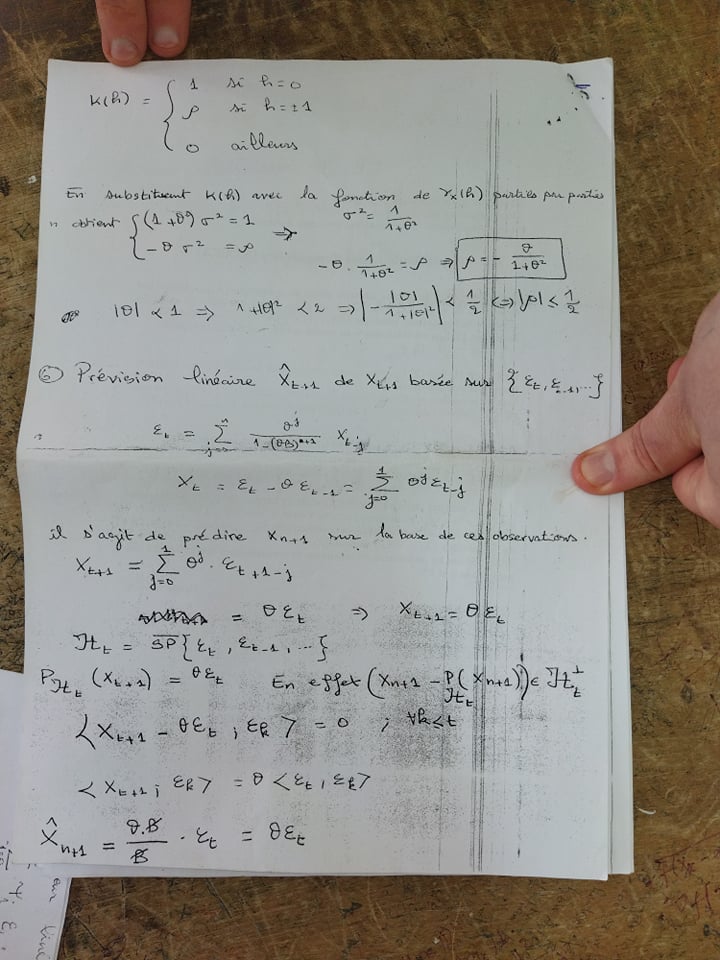 K(h) = { 1 si h=0
ρ si h=±1
0 ailleurs
En substituent K(h) avec la fonction de γₓ(h) partils par parties
n obtient { (1+θ²) σ² = 1 ⇒ σ² = 1/(1+θ²)
-θ σ² = ρ
-θ · 1/(1+θ²) = ρ ⇒ ρ = - θ/(1+θ²)
|θ| < 1 ⇒ 1+|θ|² < 2 ⇒ |-|θ|/(1+|θ|²)| < 1/2 ⟺ |ρ| ≤ 1/2
⑥ Prévision linéaire X̂ₜ₊₁ de Xₜ₊₁ basée sur {εₜ, εₜ₋₁, ...}
εₜ = Σ θʲ/(1-(θB)ⁿ⁺¹) Xₜ₋ⱼ
Xₜ = εₜ - θ εₜ₋₁ = Σ_{j=0}^{1} θʲ εₜ₋ⱼ
il s'agit de prédire Xₙ₊₁ sur la base de ces observations.
Xₜ₊₁ = Σ_{j=0}^{1} θʲ · εₜ₊₁₋ⱼ
= θ εₜ ⇒ Xₜ₊₁ = θ εₜ
ℋₜ = S̅P̅ {εₜ, εₜ₋₁, ...}
P_ℋₜ (Xₜ₊₁) = θεₜ En effet (Xₙ₊₁ - P_ℋₜ(Xₙ₊₁)) ∈ ℋₜ^⊥
<Xₜ₊₁ - θεₜ ; εₖ> = 0 ; ∀k≤t
<Xₜ₊₁ ; εₖ> = θ <εₜ ; εₖ>
X̂ₙ₊₁ = θ.B/B · εₜ = θεₜ